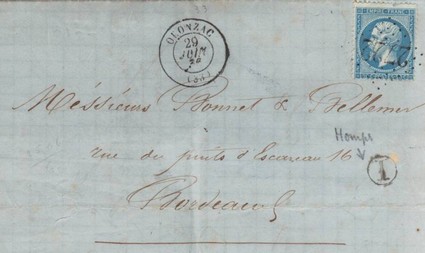 OLONZAC
29
JUIN
(33)
EMPIRE FRANC
Messieurs Bonnet &
Homps
rue du puits d'Escareau 16
1
Bordeaux